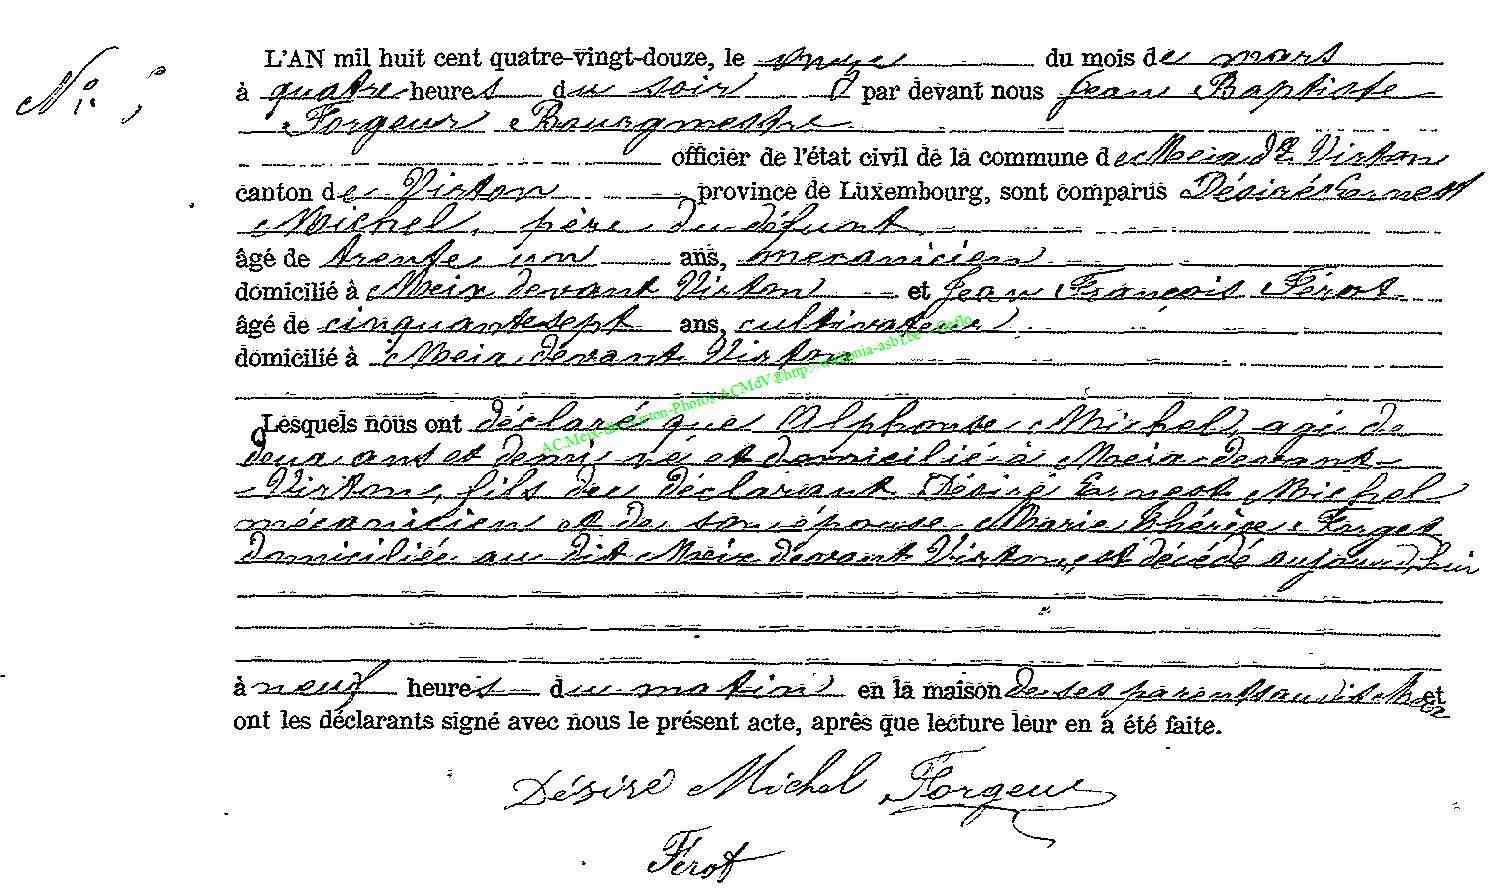 N°: 5
L'AN mil huit cent quatre-vingt-douze, le onze du mois de mars
à quatre heures du soir par devant nous Jean Baptiste
Forgeur Bourgmestre
officier de l'état civil de la commune de Meix dt Virton
canton de Virton province de Luxembourg, sont comparus Désiré Ernest
Michel, père du défunt
âgé de trente un ans, mecanicien
domicilié à Meix devant Virton et Jean François Férot
âgé de cinquante sept ans, cultivateur
domicilié à Meix devant Virton
Lesquels nous ont déclaré que Alphonse Michel, agé de
deux ans et demi né et domicilié à Meix-devant-
Virton, fils du déclarant Désiré Ernest Michel
mécanicien et de son épouse Marie Thérèse Forget
domiciliée au dit Meix devant Virton, est décédé aujourd'hui
à neuf heures du matin en la maison de ses parents au dit Meix et
ont les déclarants signé avec nous le présent acte, après que lecture leur en a été faite.
Désiré Michel Forgeur
Férot